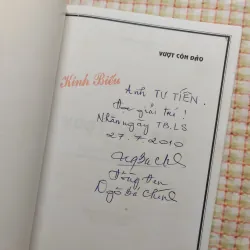 VƯỢT CÔN ĐẢO
Kính Biếu
Anh TƯ TIẾN.
đọc giải trí!
Nhân ngày TB.LS
27.7.2010
Hồng Hen
Ngô Bá Chính